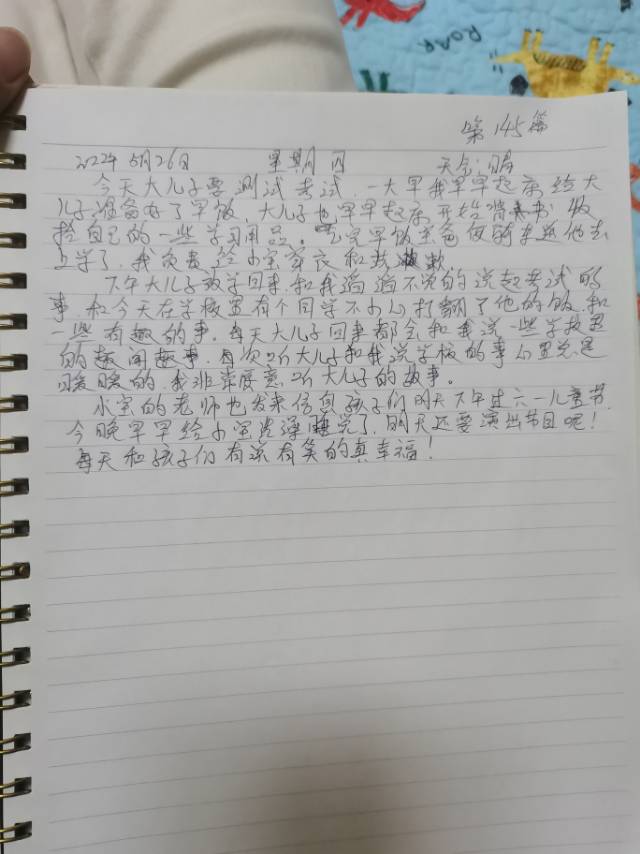 第145篇
2022年5月26日 星期四 天气:晴
今天大儿子要测试考试,一大早我早早起床给大
儿子准备好了早饭,大儿子也早早起床开始背书收
拾自己的一些学习用品。吃完早饭爸爸便骑车送他去
上学了,我负责给小宝穿衣和洗漱
下午大儿子放学回来和我滔滔不觉的说起考试的
事,和今天在学校里有个同学不小心打翻了他的饭,和
一些有趣的事。每天大儿子回事都会和我说一些学校里
的趣闻趣事,每次听大儿子和我说学校的事心里总是
暖暖的,我非常愿意听大儿子的故事。
小宝的老师也发来信息孩子们明天下午过六一儿童节
今晚早早给小宝洗澡睡觉了,明天还要演出节目呢!
每天和孩子们有说有笑的真幸福!
roar